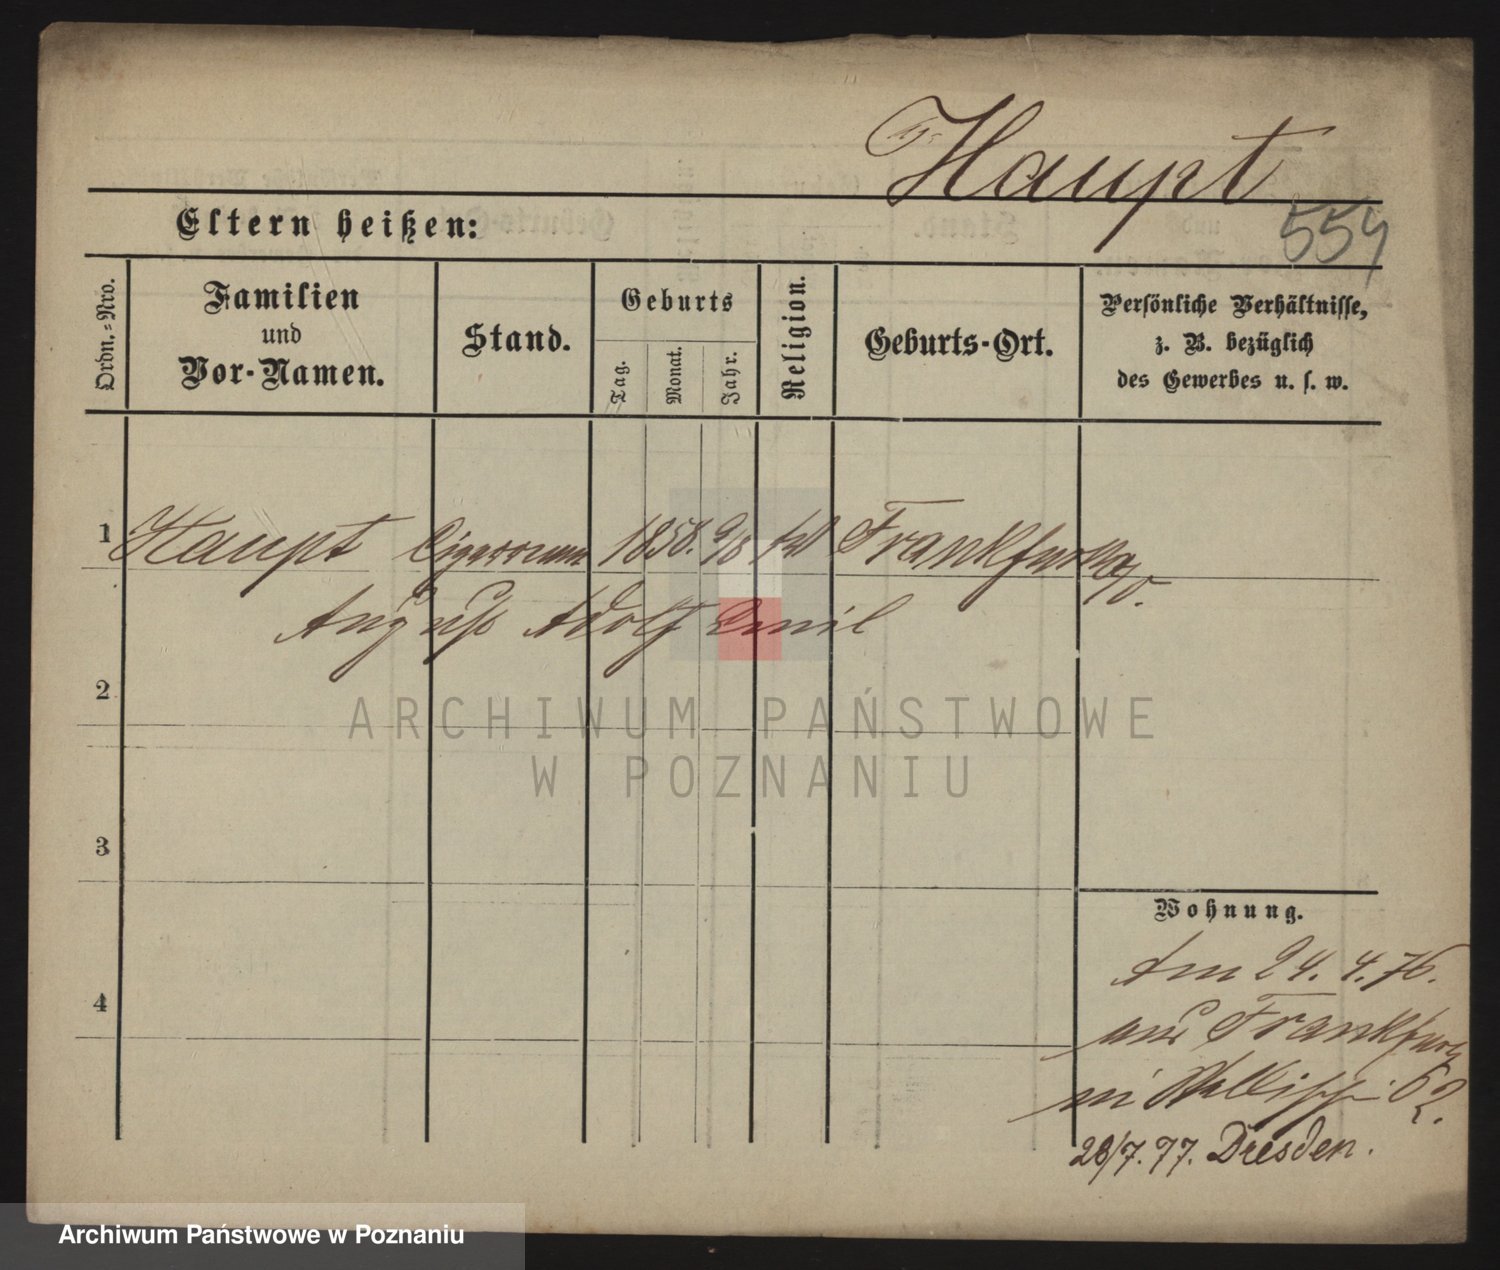 Haupt
554
Eltern heißen:
Ordn.=Nro.
Familien
und
Vor-Namen.
Stand.
Geburts
Tag.
Monat.
Jahr.
Religion.
Geburts-Ort.
Persönliche Verhältnisse,
z. B. bezüglich
des Gewerbes u. s. w.
1 Haupt 1858. 9/8 Frankfurt a/O.
August Adolf Emil
2
ARCHIWUM PAŃSTWOWE
W POZNANIU
3
Wohnung.
Am 24. 4. 76.
aus Frankfurt
4
in Wallischei 62.
28/7. 77. Dresden.
Archiwum Państwowe w Poznaniu